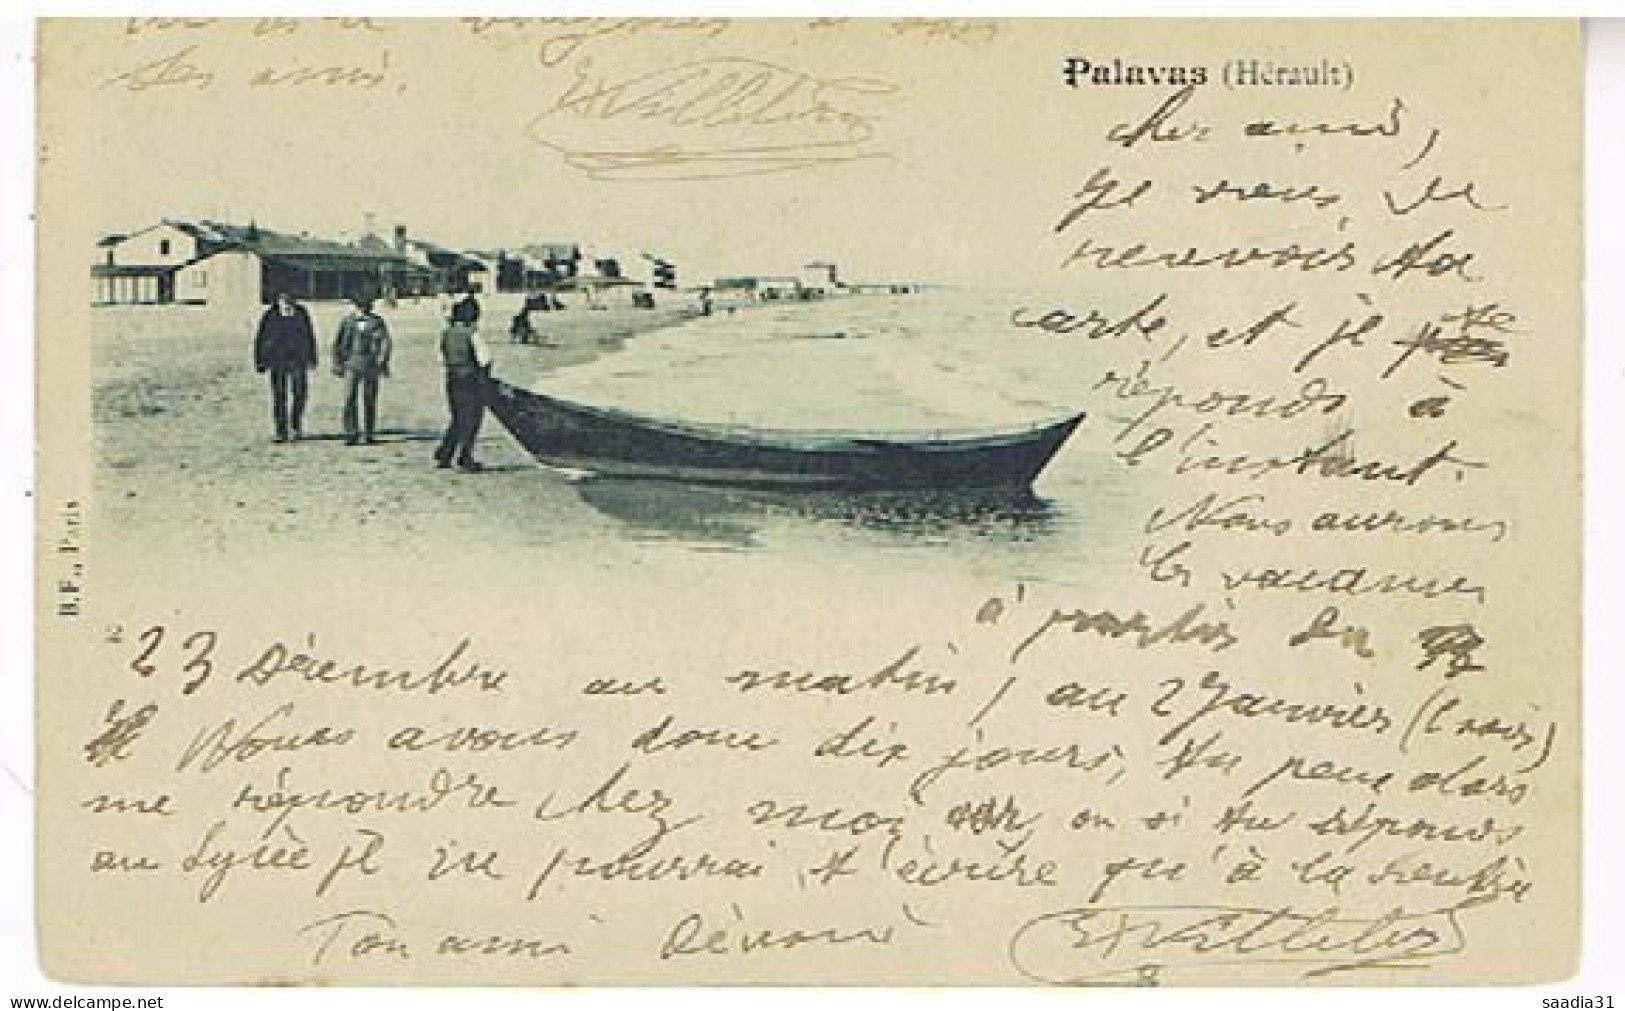 ses amis.
Palavas (Hérault)
cher ami,
Je viens de
recevois ta
carte, et je te
réponds à
l'instant.
Nous aurons
les vacances
à partir du
23 Décembre au matin, au 2 Janvier (soir)
Nous avons donc dix jours, tu peux alors
me répondre chez moi, ou si tu réponds
au Lycée je ne pourrai t'écrire qu'à la rentrée
Ton ami dévoué
B.F., Paris
2
saadia31